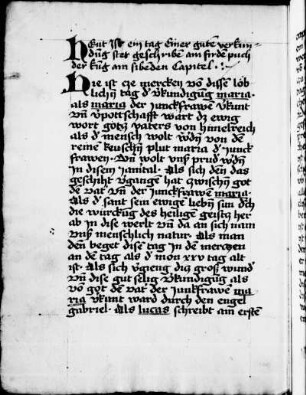 Heut ist ein tag einer guten verkun
dūg stet geschribē am firdē puch
der kūg am sibenden Capitel
Hie ist cze mercken vō disē löb
lichn̄ tag d̓ v̓kundigūg maria
als maria der junckfrawē v̓kunt
vn̄ v̓pottschafft wart dz ewig
wort gotz vaters von himelreich
als d̓ mensch wolt w̓dn̄ von dē
reinē keuschn̄ plut maria d̓ junck
frawen. Vn̄ wolt vnß prud̓ w̓dn̄
in disem jamital. Als sich den das
geschiht v̓gangē hat zwischn̄ got
dē vat̓ vn̄ der junckfrawē maria
Als d̓ sant sein ewigē liebn̄ sun dch̄
die würckūg des heiligē geistz her
ab in dise werlt vn̄ da an sich nam
vnß menschlich natur. Als man
den beget dise tag in dē merczen
an dē tag als d̓ mon xxv tag alt
ist. Als sich v̓geng diß groß wund̓
vn̄ dise gut selig v̓kundigūg als
vō got dē vat̓ der junkfrawē ma
ria v̓kunt ward durch den engel
gabriel. Als lucas schreibt am erstē